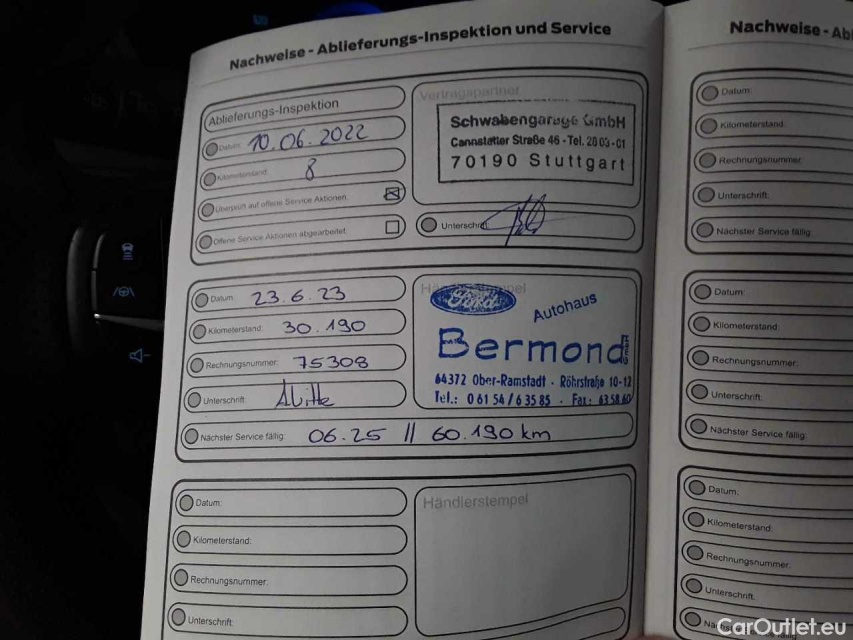 Nachweise - Ablieferungs-Inspektion und Service
Ablieferungs-Inspektion
Datum: 10.06.2022
Kilometerstand: 8
Überprüft auf offene Service Aktionen:
Offene Service Aktionen abgearbeitet:
Vertragspartner
Schwabengarage GmbH
Cannstatter Straße 46 - Tel. 28 03 - 01
70190 Stuttgart
Unterschrift
Datum: 23.6.23
Kilometerstand: 30.190
Rechnungsnummer: 75308
Unterschrift:
Nächster Service fällig: 06.25 // 60.190 km
Händlerstempel
Ford
Autohaus
Bermond GmbH
64372 Ober-Ramstadt · Röhrstraße 10-12
Tel.: 0 61 54 / 6 35 85 · Fax: 63 58 60
Datum:
Kilometerstand:
Rechnungsnummer:
Unterschrift:
Händlerstempel
Nachweise - Abl
Datum:
Kilometerstand:
Rechnungsnummer:
Unterschrift:
Nächster Service fällig:
Datum:
Kilometerstand:
Rechnungsnummer:
Unterschrift:
Nächster Service fällig:
Datum:
Kilometerstand:
Rechnungsnummer:
Unterschrift:
CarOutlet.eu